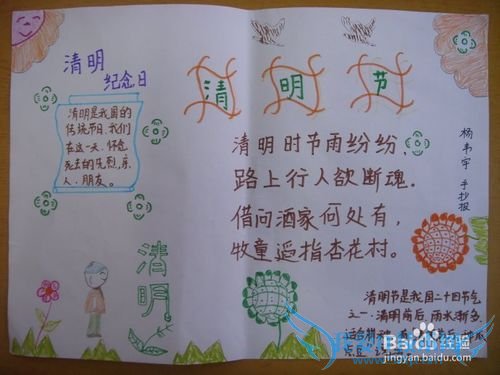 清明
纪念日
清明是我国的
传统节日,我们
在这一天,怀念
死去的先烈,亲
人、朋友。
清明
清明节
清明时节雨纷纷、
路上行人欲断魂.
借问酒家何处有,
牧童遥指杏花村。
杨韦宇 手抄报
清明节是我国二十四节气
之一.清明前后,雨水渐多,
Baidu经验
jingyan.baidu.com